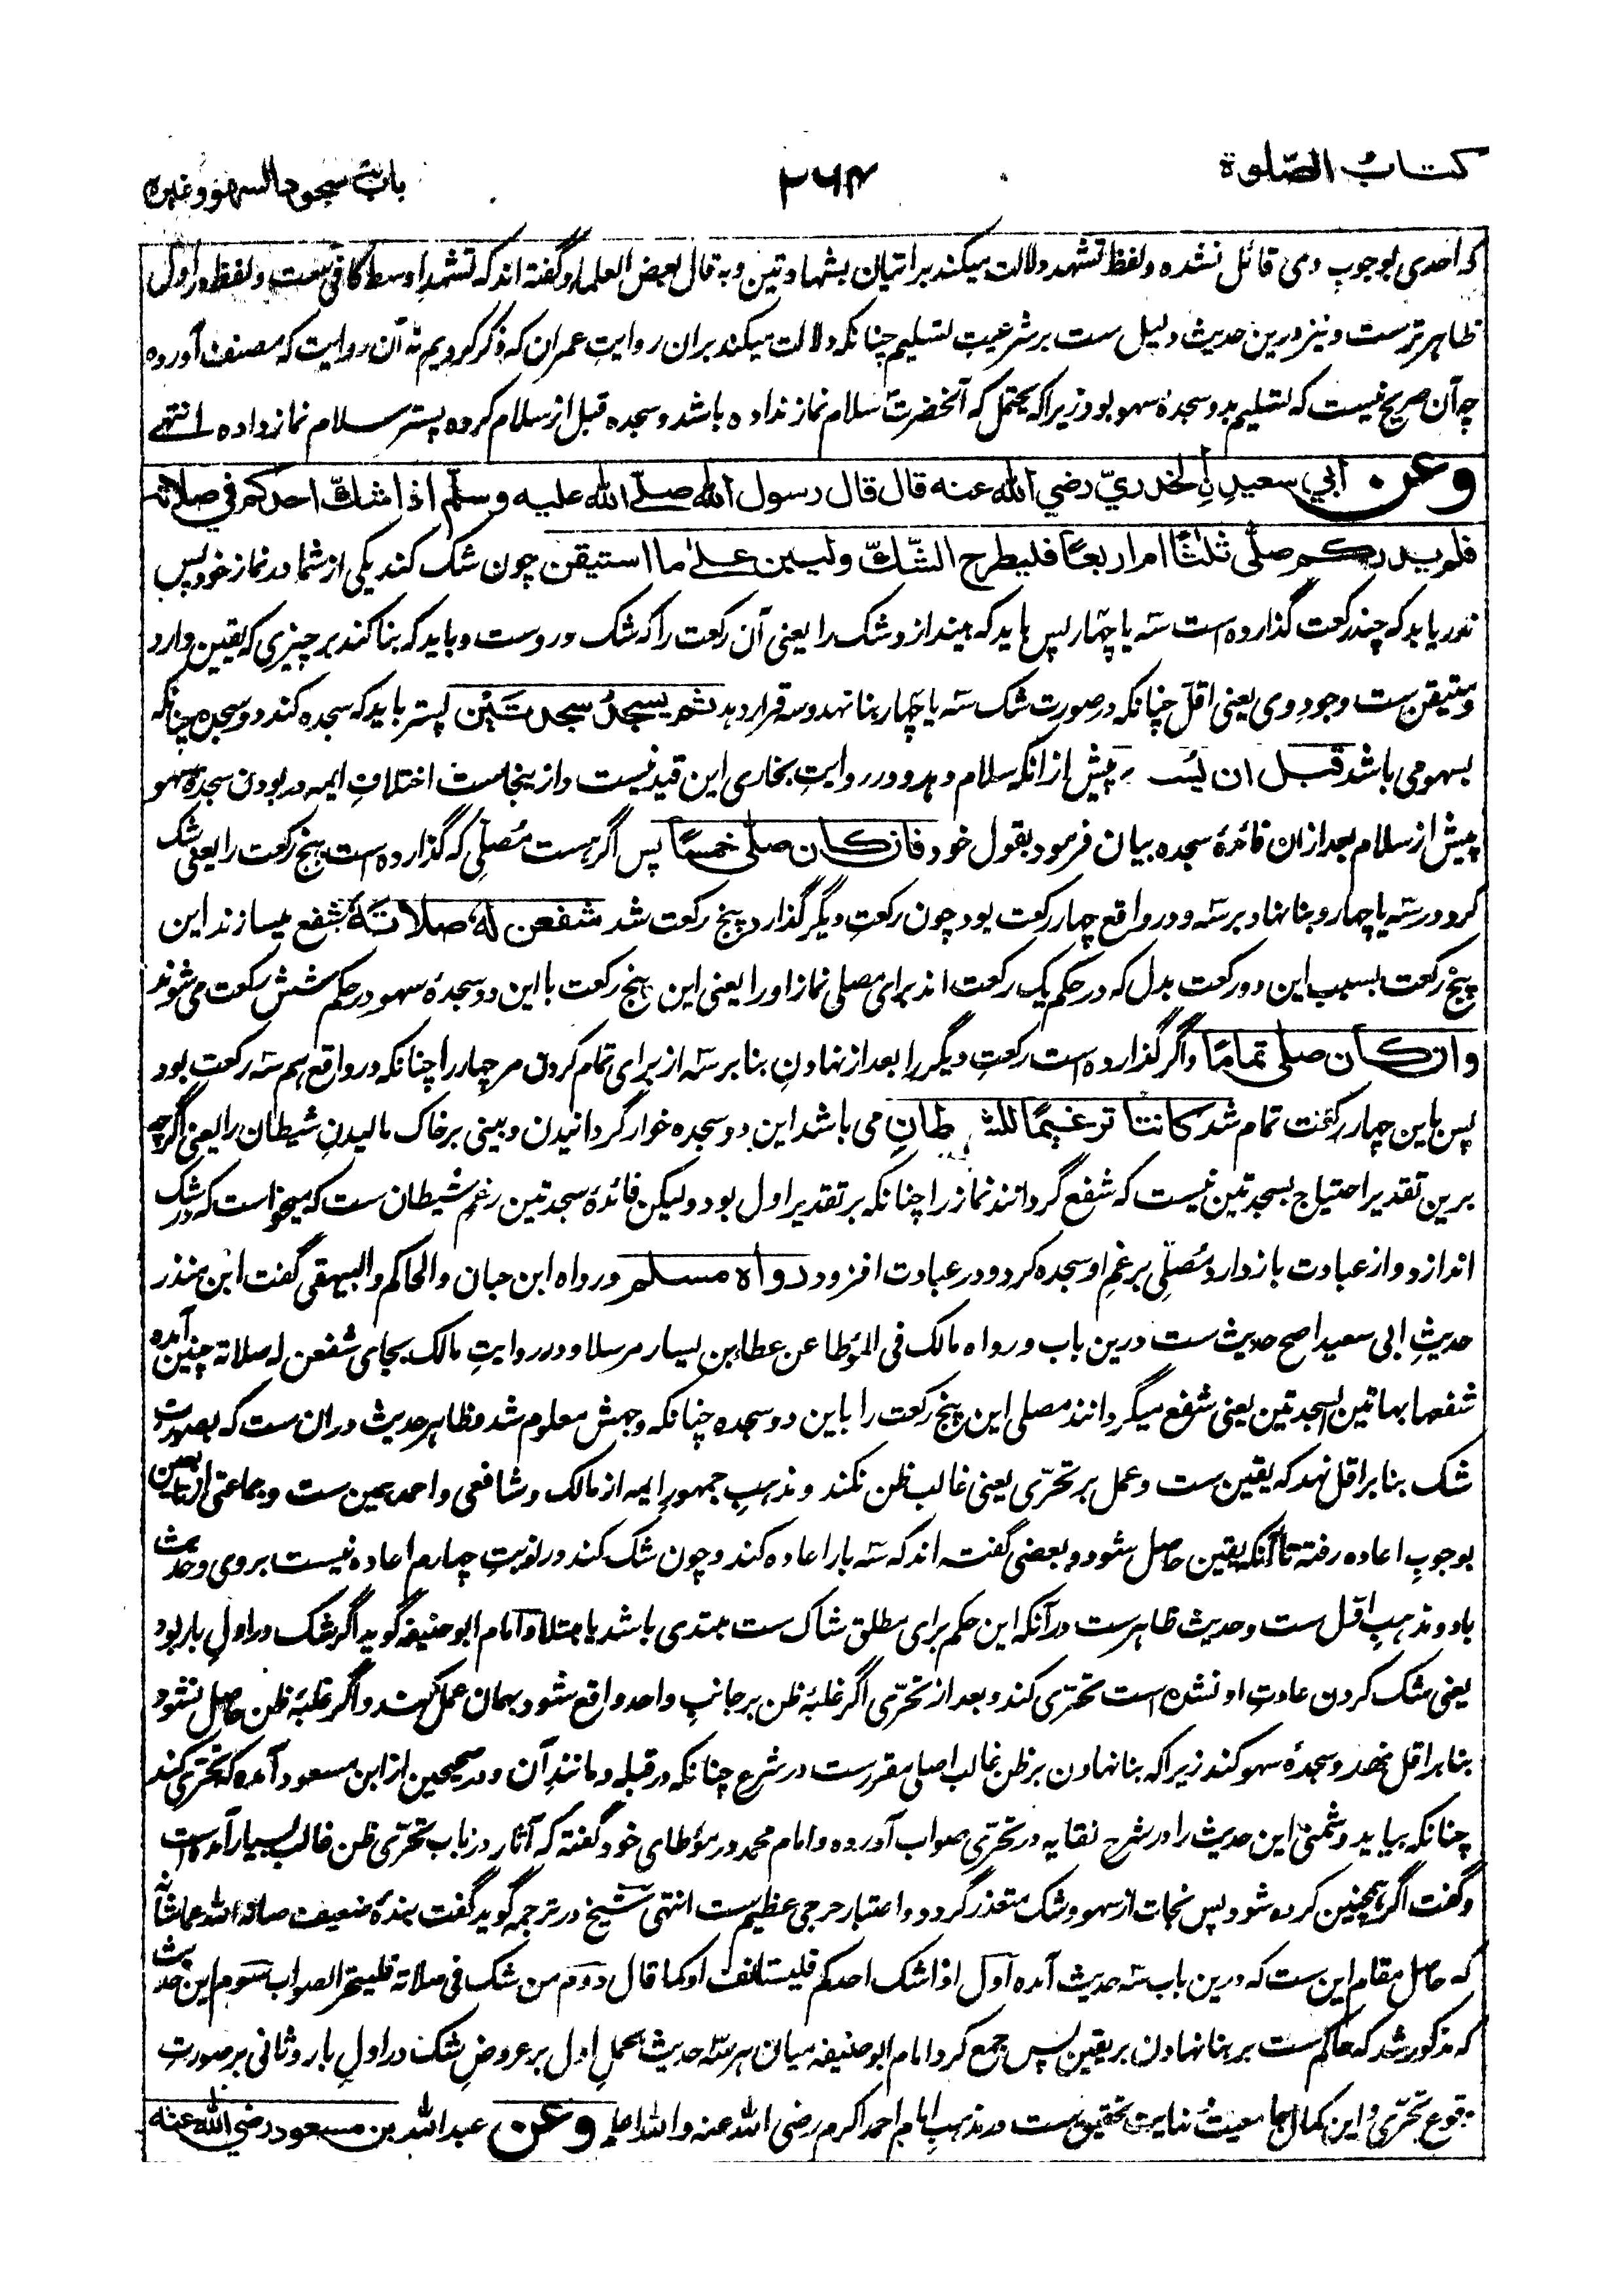 کتاب الصّلوة
۲۶۴
باب سجود السهو وغیره
که احدی بوجوب وی قائل نشده ولفظ تشهد دلالت میکند بر اتیان بشهادتین وبه قال بعض العلماء وگفته اند که تشهد اوسط کافی ست ولفظ در اول
ظاهر ترست ونیز درین حدیث دلیل ست بر شرعیت تسلیم چنانکه دلالت میکند بران روایت عمران که ذکر کردیم نه آن روایت که مصنف آورده
چه آن صریح نیست که تسلیم بدو سجدهٔ سهو بود زیراکه یحتمل که آنحضرت سلام نماز نداده باشد وسجده قبل از سلام کرده پستر سلام نماز داده انتهی
وعن أبي سعيدٍ الخدريّ رضي الله عنه قال قال رسول الله صلّى الله عليه وسلّم اذا شكّ احدكم في صلاته
فلم يدر كم صلّى ثلثًا ام اربعًا فليطرح الشّكّ وليبن على ما استيقن چون شک کند یکی از شما در نماز خود پس
ندریابد که چند رکعت گذارده است سه یا چهار پس باید که بیندازد شک را یعنی آن رکعت را که شک در وست وباید که بنا کند بر چیزی که یقین دارد
ومتیقن ست وجود وی یعنی اقل چنانکه در صورت شک سه یا چهار بنا نهد وسه قرار دهد ثم يسجدُ سجدتَيْن پستر باید که سجده کند دو سجده چنانکه
بسهو می باشد قبل ان يُسـ پیش ازانکه سلام دهد ودر روایت بخاری این قید نیست وازینجاست اختلاف ایمه در بودن سجدهٔ سهو
پیش از سلام بعد ازان فائدهٔ سجده بیان فرمود بقول خود فان كان صلّى خمسًا پس اگر هست مُصلّی که گذارده است پنج رکعت را یعنی شک
کرد در سه یا چهار وبنا نهاد بر سه ودر واقع چهار رکعت بود چون رکعتِ دیگر گذارد پنج رکعت شد شفعن له صلاتَهٗ شفع میسازند این
پنج رکعت بسبب این دو رکعت بدل که در حکم یک رکعت اند برای مصلی نماز او را یعنی این پنج رکعت با این دو سجدهٔ سهو در حکم شش رکعت می شوند
وان كان صلى تمامًا واگر گذارده است رکعتِ دیگر را بعد از نهادنِ بنا بر سه از برای تمام کردن مر چهار را چنانکه در واقع هم سه رکعت بود
پس باین چهار رکعت تمام شد كانتا ترغيمًا للشيطانِ می باشد این دو سجده خوار گردانیدن وبینی بر خاک مالیدنِ شیطان را یعنی اگرچه
برین تقدیر احتیاج بسجدتین نیست که شفع گردانند نماز را چنانکه بر تقدیر اول بود ولیکن فائدهٔ سجدتین رغمِ شیطان ست که میخواست که در شک
اندازد واز عبادت باز دارد مُصلّی برغمِ او سجده کرد ودر عبادت افزود رواه مسلم ورواه ابن حبان والحاکم والبیهقی گفت ابن منذر
حدیثِ ابی سعید اصح حدیث ست درین باب ورواه مالک فی المؤطا عن عطاء بن یسار مرسلا ودر روایتِ مالک بجای شفعن له صلاته چنین آمده
شفعها بهاتین السجدتین یعنی شفع میگردانند مصلی این پنج رکعت را باین دو سجده چنانکه وجهش معلوم شد وظاهر حدیث دران ست که بصورت
شک بنا بر اقل نهد که یقین ست وعمل بر تحرّی یعنی غالب ظن نکند ومذهبِ جمهورِ ایمه از مالک وشافعی واحمد همین ست وجماعتی از تابعین
بوجوبِ اعاده رفته تا آنکه یقین حاصل شود وبعضی گفته اند که سه بار اعاده کند وچون شک کند در نوبتِ چهارم اعاده نیست بر وی وحدیث
باد ومذهبِ اقل ست وحدیث ظاهرست درآنکه این حکم برای مطلق شاک ست مبتدی باشد یا مبتلا وامام ابوحنیفه گوید اگر شک در اولِ بار بود
یعنی شک کردن عادتِ او نشده است تحرّی کند وبعد از تحرّی اگر غلبهٔ ظن بر جانب واحد واقع شود بهمان عمل کند واگر غلبهٔ ظن حاصل نشود
بنا بر اقل نهد وسجدهٔ سهو کند زیراکه بنا نهادن بر ظن غالب اصلی مقررست در شرع چنانکه در قبله ومانندِ آن ودر صحیحین از ابن مسعود آمده که تحرّی کند
چنانکه بیاید وشمنی این حدیث را در شرح نقایه در تحرّی صواب آورده وامام محمد در مؤطای خود گفته که آثار در باب تحرّی ظن غالب بسیار آمده است
وگفت اگر همچنین کرده شود پس نجات از سهو وشک متعذر گردد واعتبار حرجی عظیم ست انتهی شیخ در ترجمه گوید گفت بندهٔ ضعیف صانه الله عما شانه
که حاصل مقام این ست که درین باب سه حدیث آمده اول اذا شک احدکم فلیستانف اوکما قال دوم من شک فی صلاته فلیتحر الصواب سوم این حدیث
که مذکور شد که حاکم ست بر بنا نهادن بر یقین پس جمع کرد امام ابوحنیفه میان هر سه حدیث بحملِ اول بر عروضِ شک در اولِ بار وثانی بر صورتِ
وقوع تحرّی واین کمال جامعیت ونهایت تحقیق ست در مذهبِ امام احمد اکرم رضی الله عنه والله اعلم وعن عبد الله بن مسعود رضي الله عنه